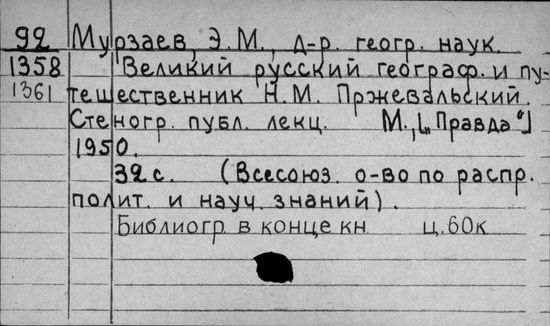 92 Мурзаев, Э.М., д-р. геогр. наук.
1358 Великий русский географ. и пу-
1361 тешественник Н.М. Пржевальский.
Стеногр. публ. лекц. М., [„Правда"]
1950.
32 с. (Всесоюз. о-во по распр.
полит. и науч. знаний).
Библиогр. в конце кн ц. 60к